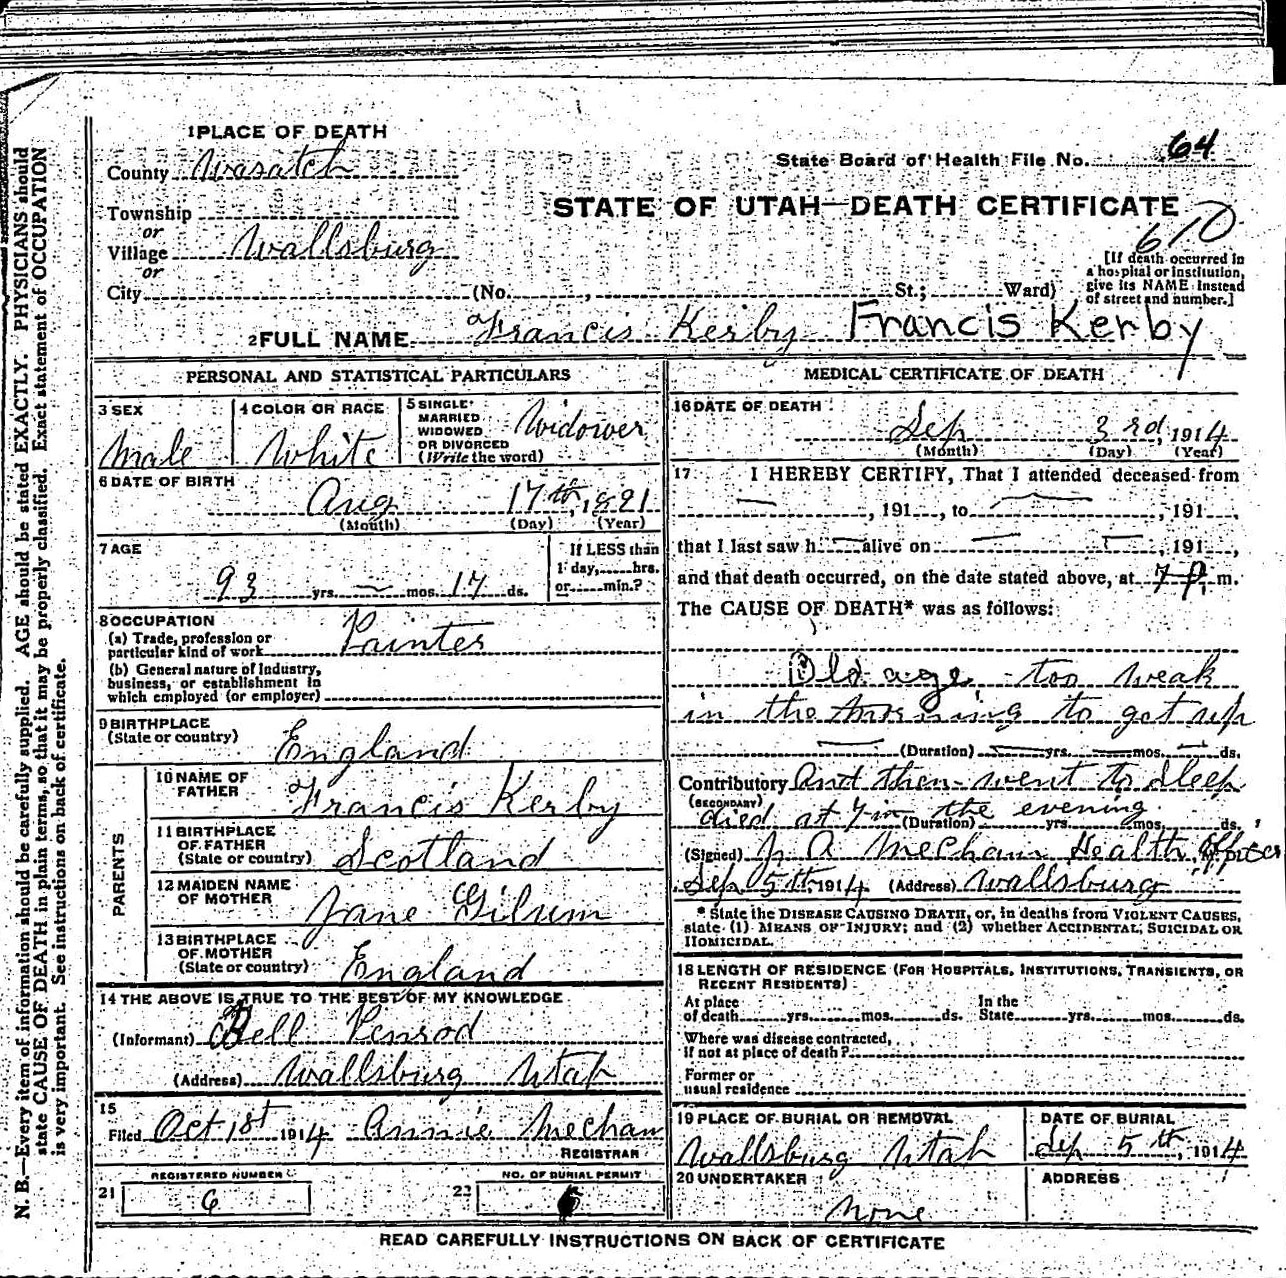 1 PLACE OF DEATH
County Wasatch
State Board of Health File No. 64
Township
or
Village Wallsburg
or
City (No. , St.; Ward)
STATE OF UTAH—DEATH CERTIFICATE
610
[If death occurred in
a hospital or institution,
give its NAME instead
of street and number.]
2 FULL NAME Francis Kerby Francis Kerby
PERSONAL AND STATISTICAL PARTICULARS
3 SEX
Male
4 COLOR OR RACE
White
5 SINGLE
MARRIED
WIDOWED
OR DIVORCED
(Write the word)
Widower
6 DATE OF BIRTH
Aug 17th, 1821
(Month) (Day) (Year)
7 AGE
93 yrs. — mos. 17 ds.
If LESS than
1 day, hrs.
or min.?
8 OCCUPATION
(a) Trade, profession or
particular kind of work Painter
(b) General nature of industry,
business, or establishment in
which employed (or employer)
9 BIRTHPLACE
(State or country) England
PARENTS
10 NAME OF
FATHER Francis Kerby
11 BIRTHPLACE
OF FATHER
(State or country) Scotland
12 MAIDEN NAME
OF MOTHER Jane
13 BIRTHPLACE
OF MOTHER
(State or country) England
14 THE ABOVE IS TRUE TO THE BEST OF MY KNOWLEDGE
(Informant) Bell Penrod
(Address) Wallsburg Utah
15
Filed Oct 1st 1914 Annie Mecham
REGISTRAR
REGISTERED NUMBER
21 6
NO. OF BURIAL PERMIT
22
MEDICAL CERTIFICATE OF DEATH
16 DATE OF DEATH
Sep 3rd, 1914
(Month) (Day) (Year)
17 I HEREBY CERTIFY, That I attended deceased from
— , 191 , to — , 191 ,
that I last saw h — alive on — , 191 ,
and that death occurred, on the date stated above, at 7 P. m.
The CAUSE OF DEATH* was as follows:
Old age too weak
in the morning to get up
— (Duration) — yrs. — mos. — ds.
Contributory and then went to sleep
(SECONDARY)
died at 7 in the evening
(Duration) yrs. mos. ds.
(Signed) J A Mecham Health Officer
Sep 5th, 1914 (Address) Wallsburg
* State the DISEASE CAUSING DEATH, or, in deaths from VIOLENT CAUSES,
state (1) MEANS OF INJURY; and (2) whether ACCIDENTAL, SUICIDAL OR
HOMICIDAL.
18 LENGTH OF RESIDENCE (FOR HOSPITALS, INSTITUTIONS, TRANSIENTS, OR
RECENT RESIDENTS)
At place
of death yrs. mos. ds.
In the
State yrs. mos. ds.
Where was disease contracted,
if not at place of death?
Former or
usual residence
19 PLACE OF BURIAL OR REMOVAL
Wallsburg Utah
DATE OF BURIAL
Sep 5th, 1914
20 UNDERTAKER
None
ADDRESS
READ CAREFULLY INSTRUCTIONS ON BACK OF CERTIFICATE
N. B.—Every item of information should be carefully supplied. AGE should be stated EXACTLY. PHYSICIANS should
state CAUSE OF DEATH in plain terms, so that it may be properly classified. Exact statement of OCCUPATION
is very important. See instructions on back of certificate.